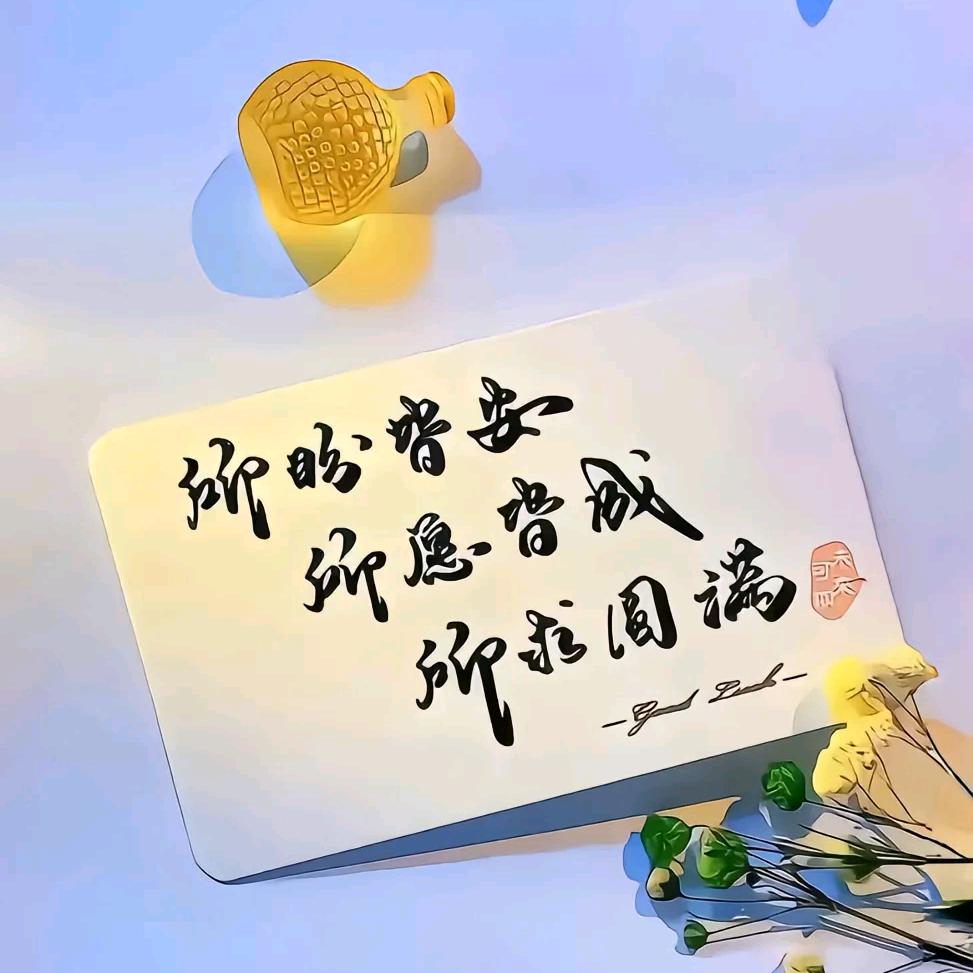 所盼皆安
所愿皆成
所求圆满
— Good Luck —